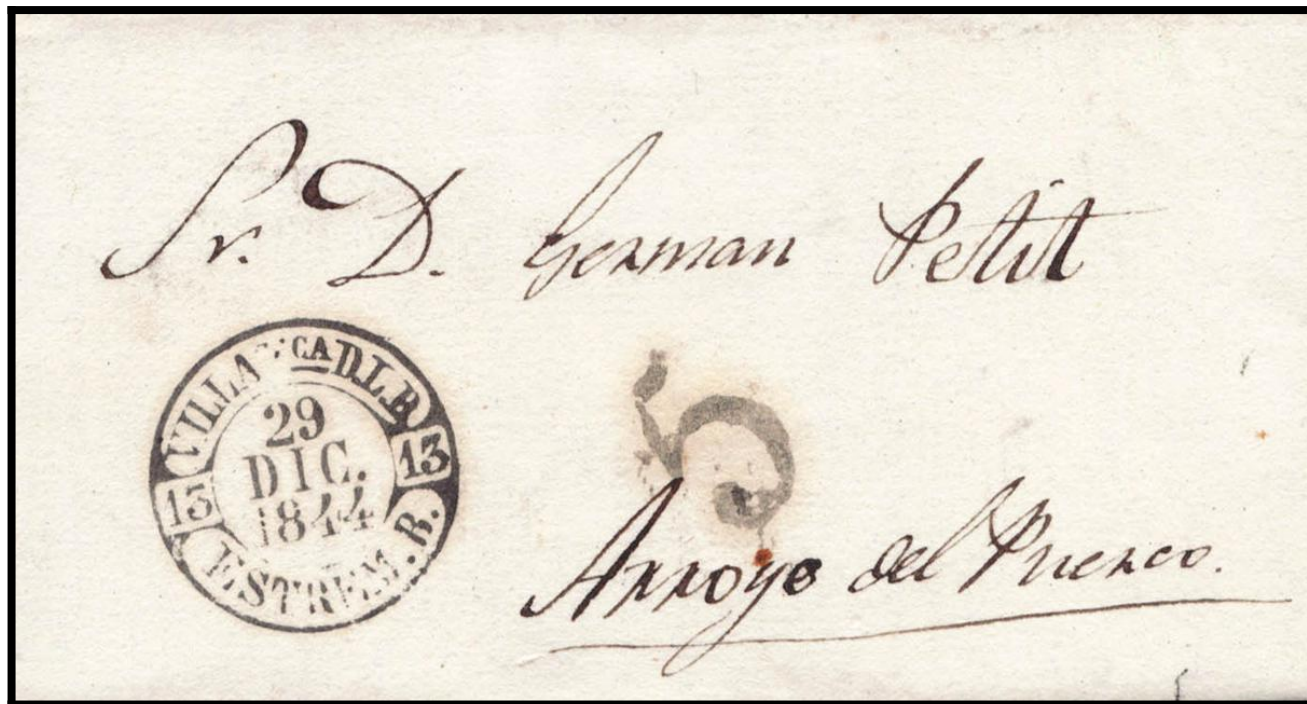 Sr. D. German Petit
VILLA CA D.L.B
29
DIC.
1844
13
13
ESTREM. B.
5
Arroyo del Puerco.